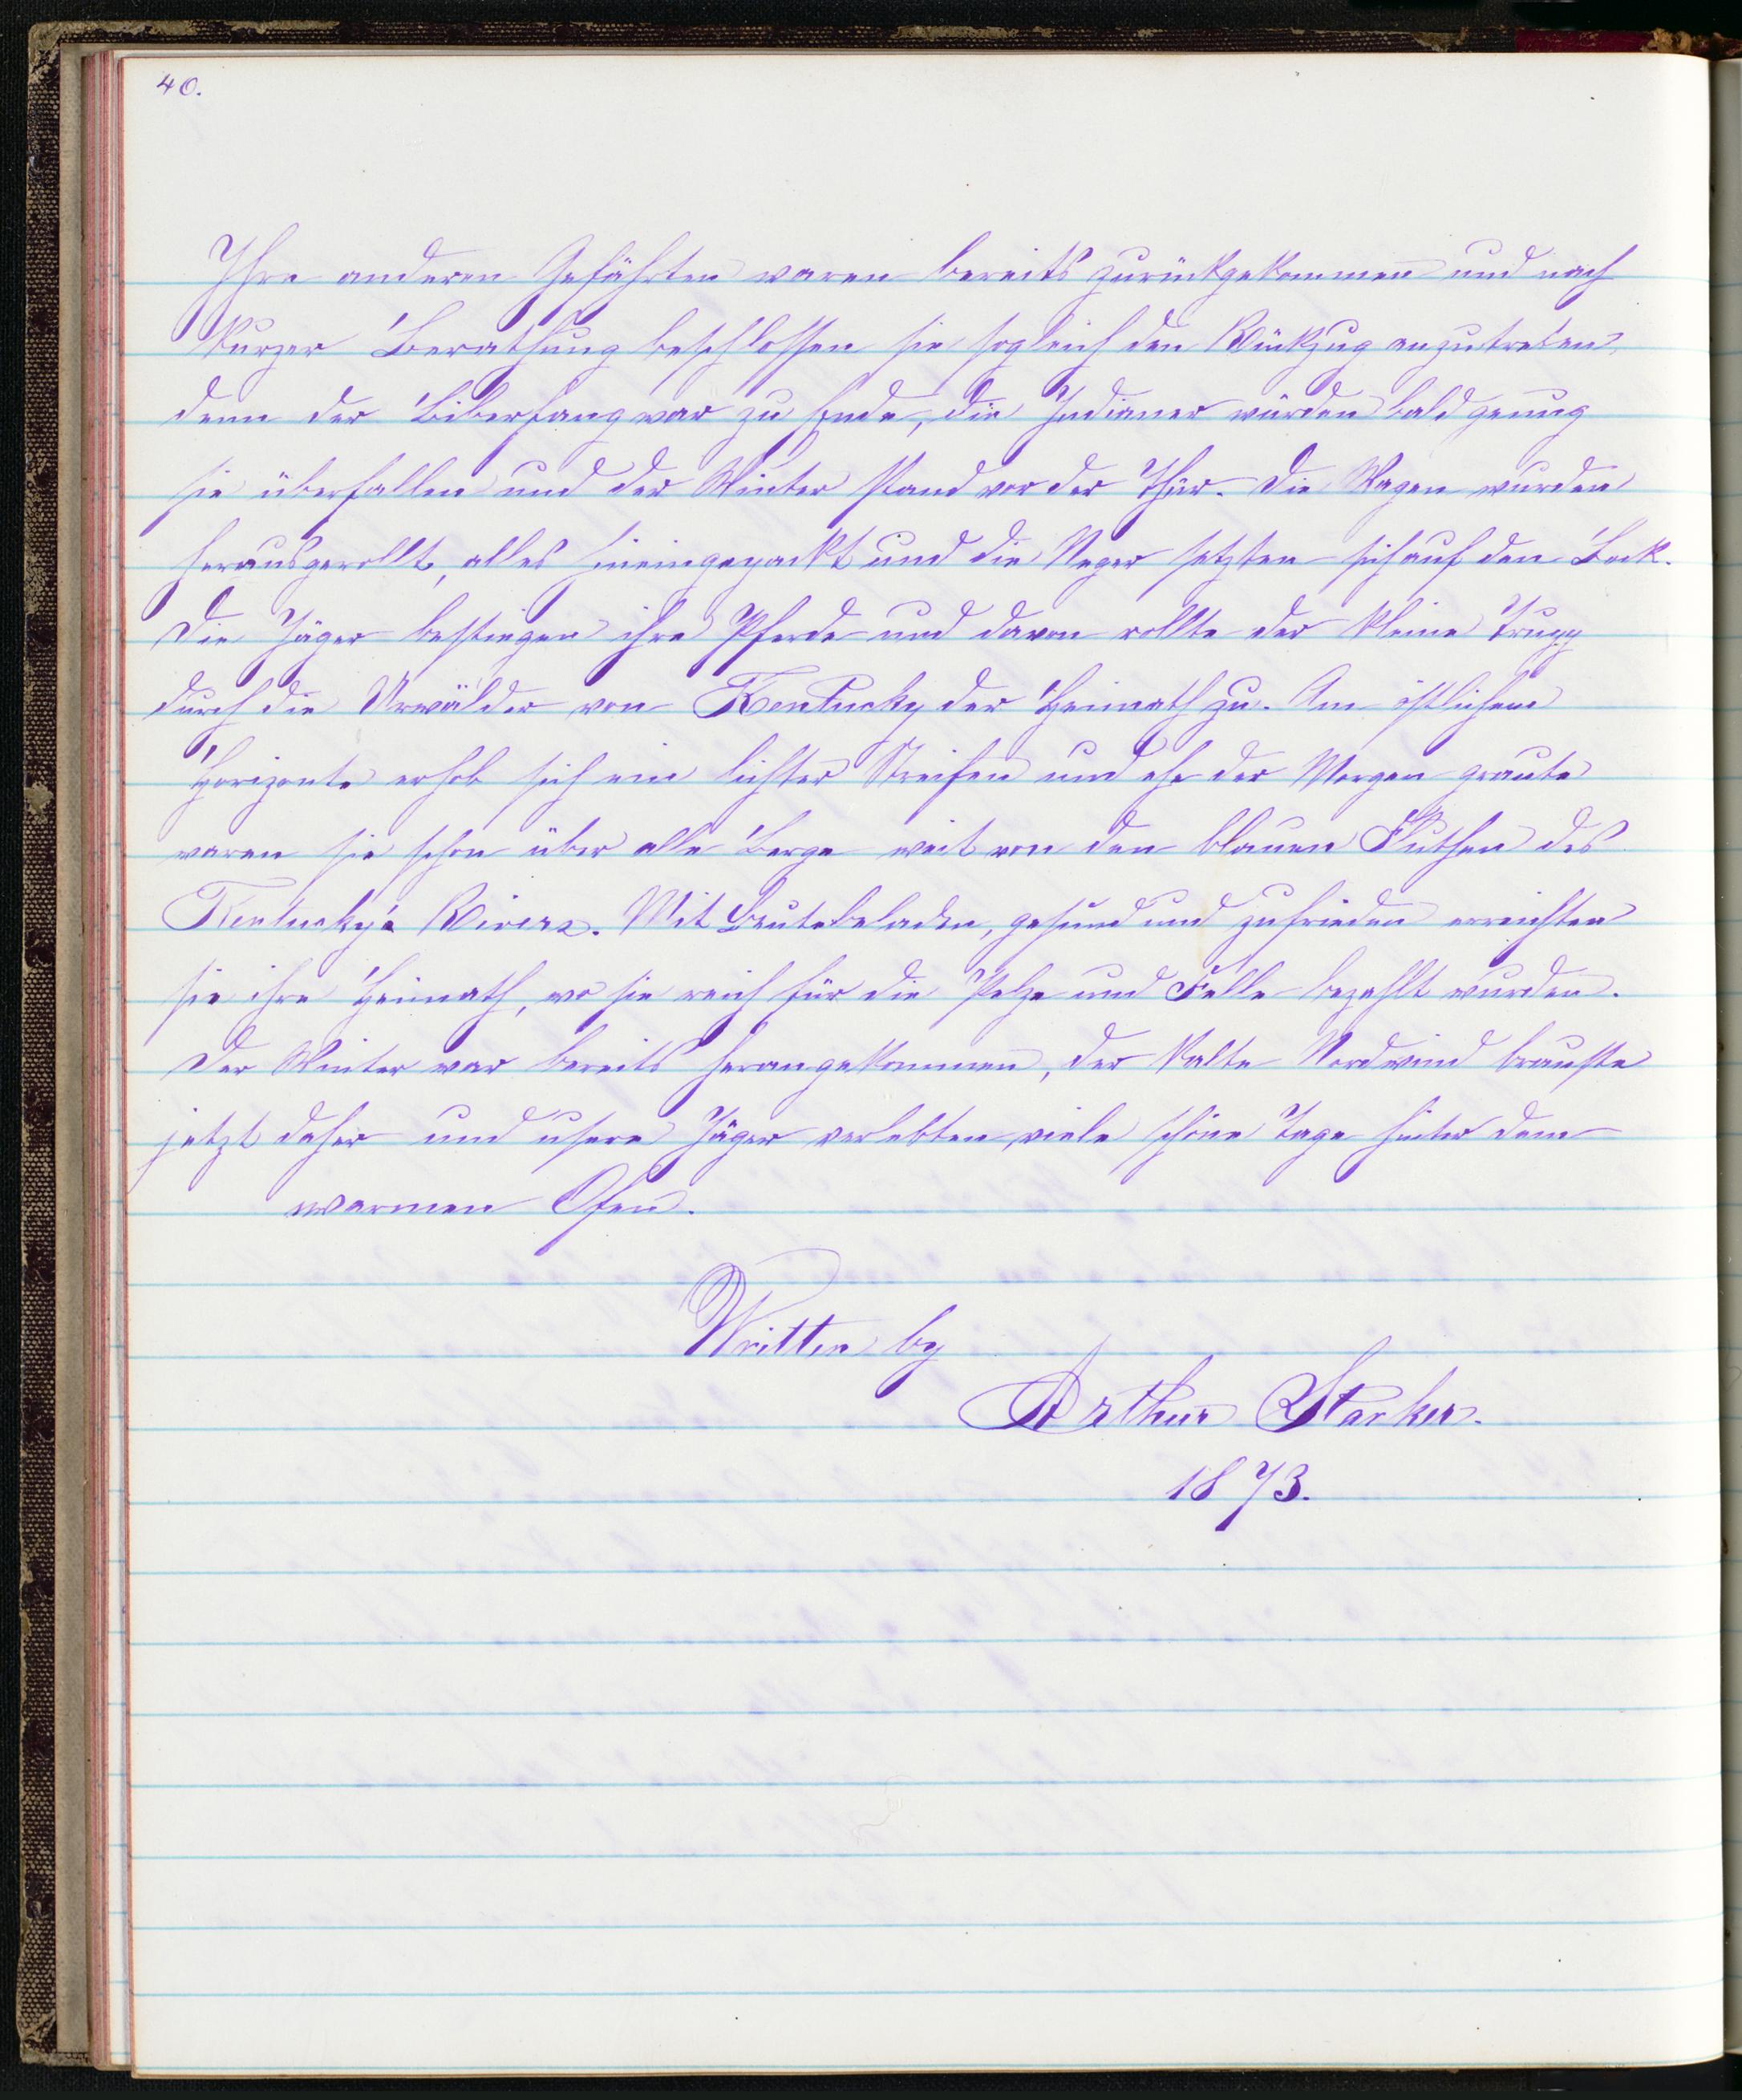 40.
Ihre anderen Gefährten waren bereits zurückgekommen und nach
kurzer Berathung beschlossen sie sogleich den Rückzug anzutreten,
denn der Biberfang war zu Ende, die Indianer würden bald genug
sie überfallen und der Winter stand vor der Thür. Die Wagen wurden
herausgerollt, alles hineingepackt und die Neger setzten sich auf den Bock.
Die Jäger bestiegen ihre Pferde und davon rollte der kleine Trupp
durch die Urwälder von Kentucky der Heimath zu. Am östlichem
Horizonte erhob sich ein lichter Streifen und ehe der Morgen graute
waren sie schon über alle Berge weit von den blauen Fluthen des
Kentucky's Rivers. Mit Beutebeladen, gesund und zufrieden erreichten
sie ihre Heimath, wo sie reich für die Pelze und Felle bezahlt wurden.
Der Winter war bereits herangekommen, der kalte Nordwind brauste
jetzt daher und usere Jäger verlebten viele schöne Tage hinter dem
warmen Ofen.
Written by
Arthur Starker.
1873.